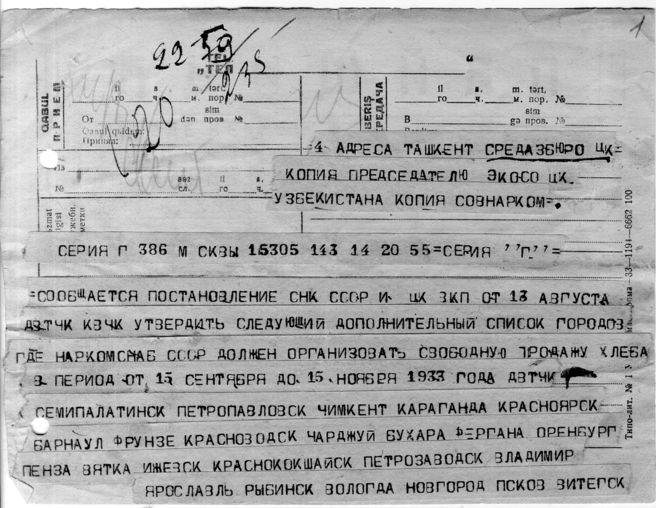 1
22 59
235
„ТЕЛ
20
QABUL
ПРИЕМ
il s. m. tərt.
го ч. м. пор. №
sim
От dən пров №
Qəbul qъldъ:
Принял:
BERIS
ПЕРЕДАЧА
il s. m. tərt,
го ч. м. пор. №
sim
В gə пров. №
=4 АДРЕСА ТАШКЕНТ СРЕДАЗБЮРО ЦК=
Из
№ səz il s.
сл. го ч.
КОПИЯ ПРЕДСЕДАТЕЛЮ ЭКОСО ЦК.
УЗБЕКИСТАНА КОПИЯ СОВНАРКОМ=.
СЕРИЯ Г 386 М СКВЫ 15305 143 14 20 55=СЕРИЯ ’’Г’’=
=СООБЩАЕТСЯ ПОСТАНОВЛЕНИЕ СНК СССР И ЦК ВКП ОТ 13 АВГУСТА
ДВТЧК КВЧК УТВЕРДИТЬ СЛЕДУЮЩИЙ ДОПОЛНИТЕЛЬНЫЙ СПИСОК ГОРОДОВ
ГДЕ НАРКОМСНАБ СССР ДОЛЖЕН ОРГАНИЗОВАТЬ СВОБОДНУЮ ПРОДАЖУ ХЛЕБА
В ПЕРИОД ОТ 15 СЕНТЯБРЯ ДО 15 НОЯБРЯ 1933 ГОДА ДВТЧК
СЕМИПАЛАТИНСК ПЕТРОПАВЛОВСК ЧИМКЕНТ КАРАГАНДА КРАСНОЯРСК
БАРНАУЛ ФРУНЗЕ КРАСНОВОДСК ЧАРДЖУЙ БУХАРА ФЕРГАНА ОРЕНБУРГ
ПЕНЗА ВЯТКА ИЖЕВСК КРАСНОКОКШАЙСК ПЕТРОЗАВОДСК ВЛАДИМИР
ЯРОСЛАВЛЬ РЫБИНСК ВОЛОГДА НОВГОРОД ПСКОВ ВИТЕГСК
33—1194—6662 100
Типо-лит. №